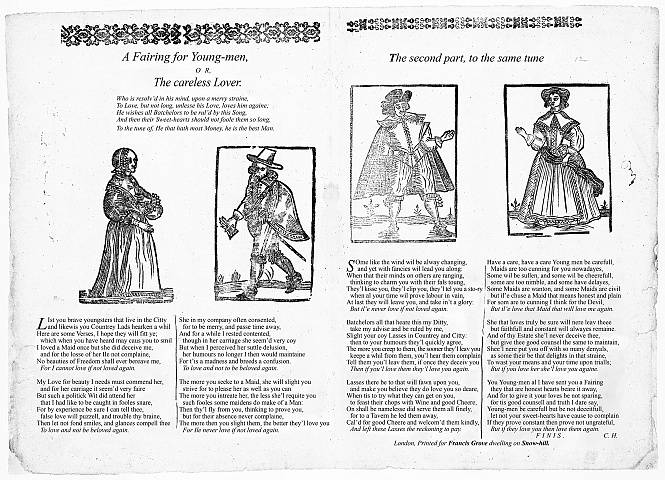 A Fairing for Young-men,
OR,
The careless Lover.
Who is resolv'd in his mind, upon a merry straine,
To Love, but not long, unlesse his Love, loves him againe;
He wishes all Batchelors to be rul'd by this Song,
And then their Sweet-hearts should not foole them so long.
To the tune of, He that hath most Money, he is the best Man.
List you brave youngsters that live in the Citty
and likewis you Country Lads hearken a whil
Here are some Verses, I hope they will fit ye;
which when you have heard may caus you to smil
I loved a Maid once but she did deceive me,
and for the losse of her Ile not complaine,
No beauties of Freedom shall ever bereave me,
For I cannot love if not loved againe.
My Love for beauty I needs must commend her,
and for her carriage it seem'd very faire
But such a politick Wit did attend her
that I had like to be caught in fooles snare,
For by experience be sure I can tell thee,
false love will puzzell, and trouble thy braine,
Then let not fond smiles, and glances compell thee
To love and not be beloved again.
She in my company often consented,
for to be merry, and passe time away,
And for a while I rested contented,
though in her carriage she seem'd very coy
But when I perceived her suttle delusion,
her humours no longer I then would maintaine
For t'is a madness and breeds a confusion.
To love and not to be beloved again.
The more you seeke to a Maid, she will slight you
strive for to please her as well as you can
The more you intreate her, the less she'l requite you
such fooles some maidens do make of a Man:
Then thy'l fly from you, thinking to prove you,
but for their absence never complaine,
The more then you slight them, the better they'l love you
For He never love if not loved again.
The second part, to the same tune
SOme like the wind wil be alway changing,
and yet with fancies wil lead you along:
When that their minds on others are ranging,
thinking to charm you with their fals toung,
They'l kisse you, they'l clip you, they'l tel you a sto-ry
when al your time wil prove labour in vain,
At last they will leave you, and take in't a glory:
But il'e never love if not loved again.
Batchelors all that heare this my Ditty,
take my advise and be ruled by me,
Slight your coy Lasses in Country and Citty:
then to your humours they'l quickly agree,
The more you creep to them, the sooner they'l leav you
keepe a whil from them, you'l hear them complain
Tell them you'l leav them, if once they deceiv you
Then if you'l love them they'l love you again.
Lasses there be to that will fawn upon you,
and make you believe they do love you so deare,
When tis to try what they can get on you,
to feast their chops with Wine and good Cheere,
On shall be namelesse did serve them all finely,
for to a Tavern he led them away,
Cal'd for good Cheere and welcom'd them kindly,
And left these Lasses the reckoning to pay.
Have a care, have a care Young men be carefull,
Maids are too cunning for you nowadayes,
Some wil be sullen, and some wil be cheerefull,
some are too nimble, and some have delayes,
Some Maids are wanton, and some Maids are civil
but if'e chuse a Maid that means honest and plain
For som are to cunning I think for the Devil,
But it's love that Maid that will love me again.
She that loves truly be sure will nere leav theee
but faithfull and constant will alwayes remaine.
And of thy Estate she'l never deceive thee,
but give thee good counsel the same to maintain,
Shee'l nere put you off with so many denyals,
as some their be that delights in that straine,
To wast your means and your time upon trials;
But if you love her she'l love you againe.
You Young-men al I have sent you a Fairing
they that are honest hearts beare it away,
And for to give it your loves be not sparing,
for its good counsell and truth I dare say,
Young-men be carefull but be not deceifull,
let not your sweet-hearts have cause to complain
If they prove constant then prove not ungratefull,
But if they love you then love them again.
FINIS. C. H.
London, Printed for Francis Grove dwelling on Snow-hill.